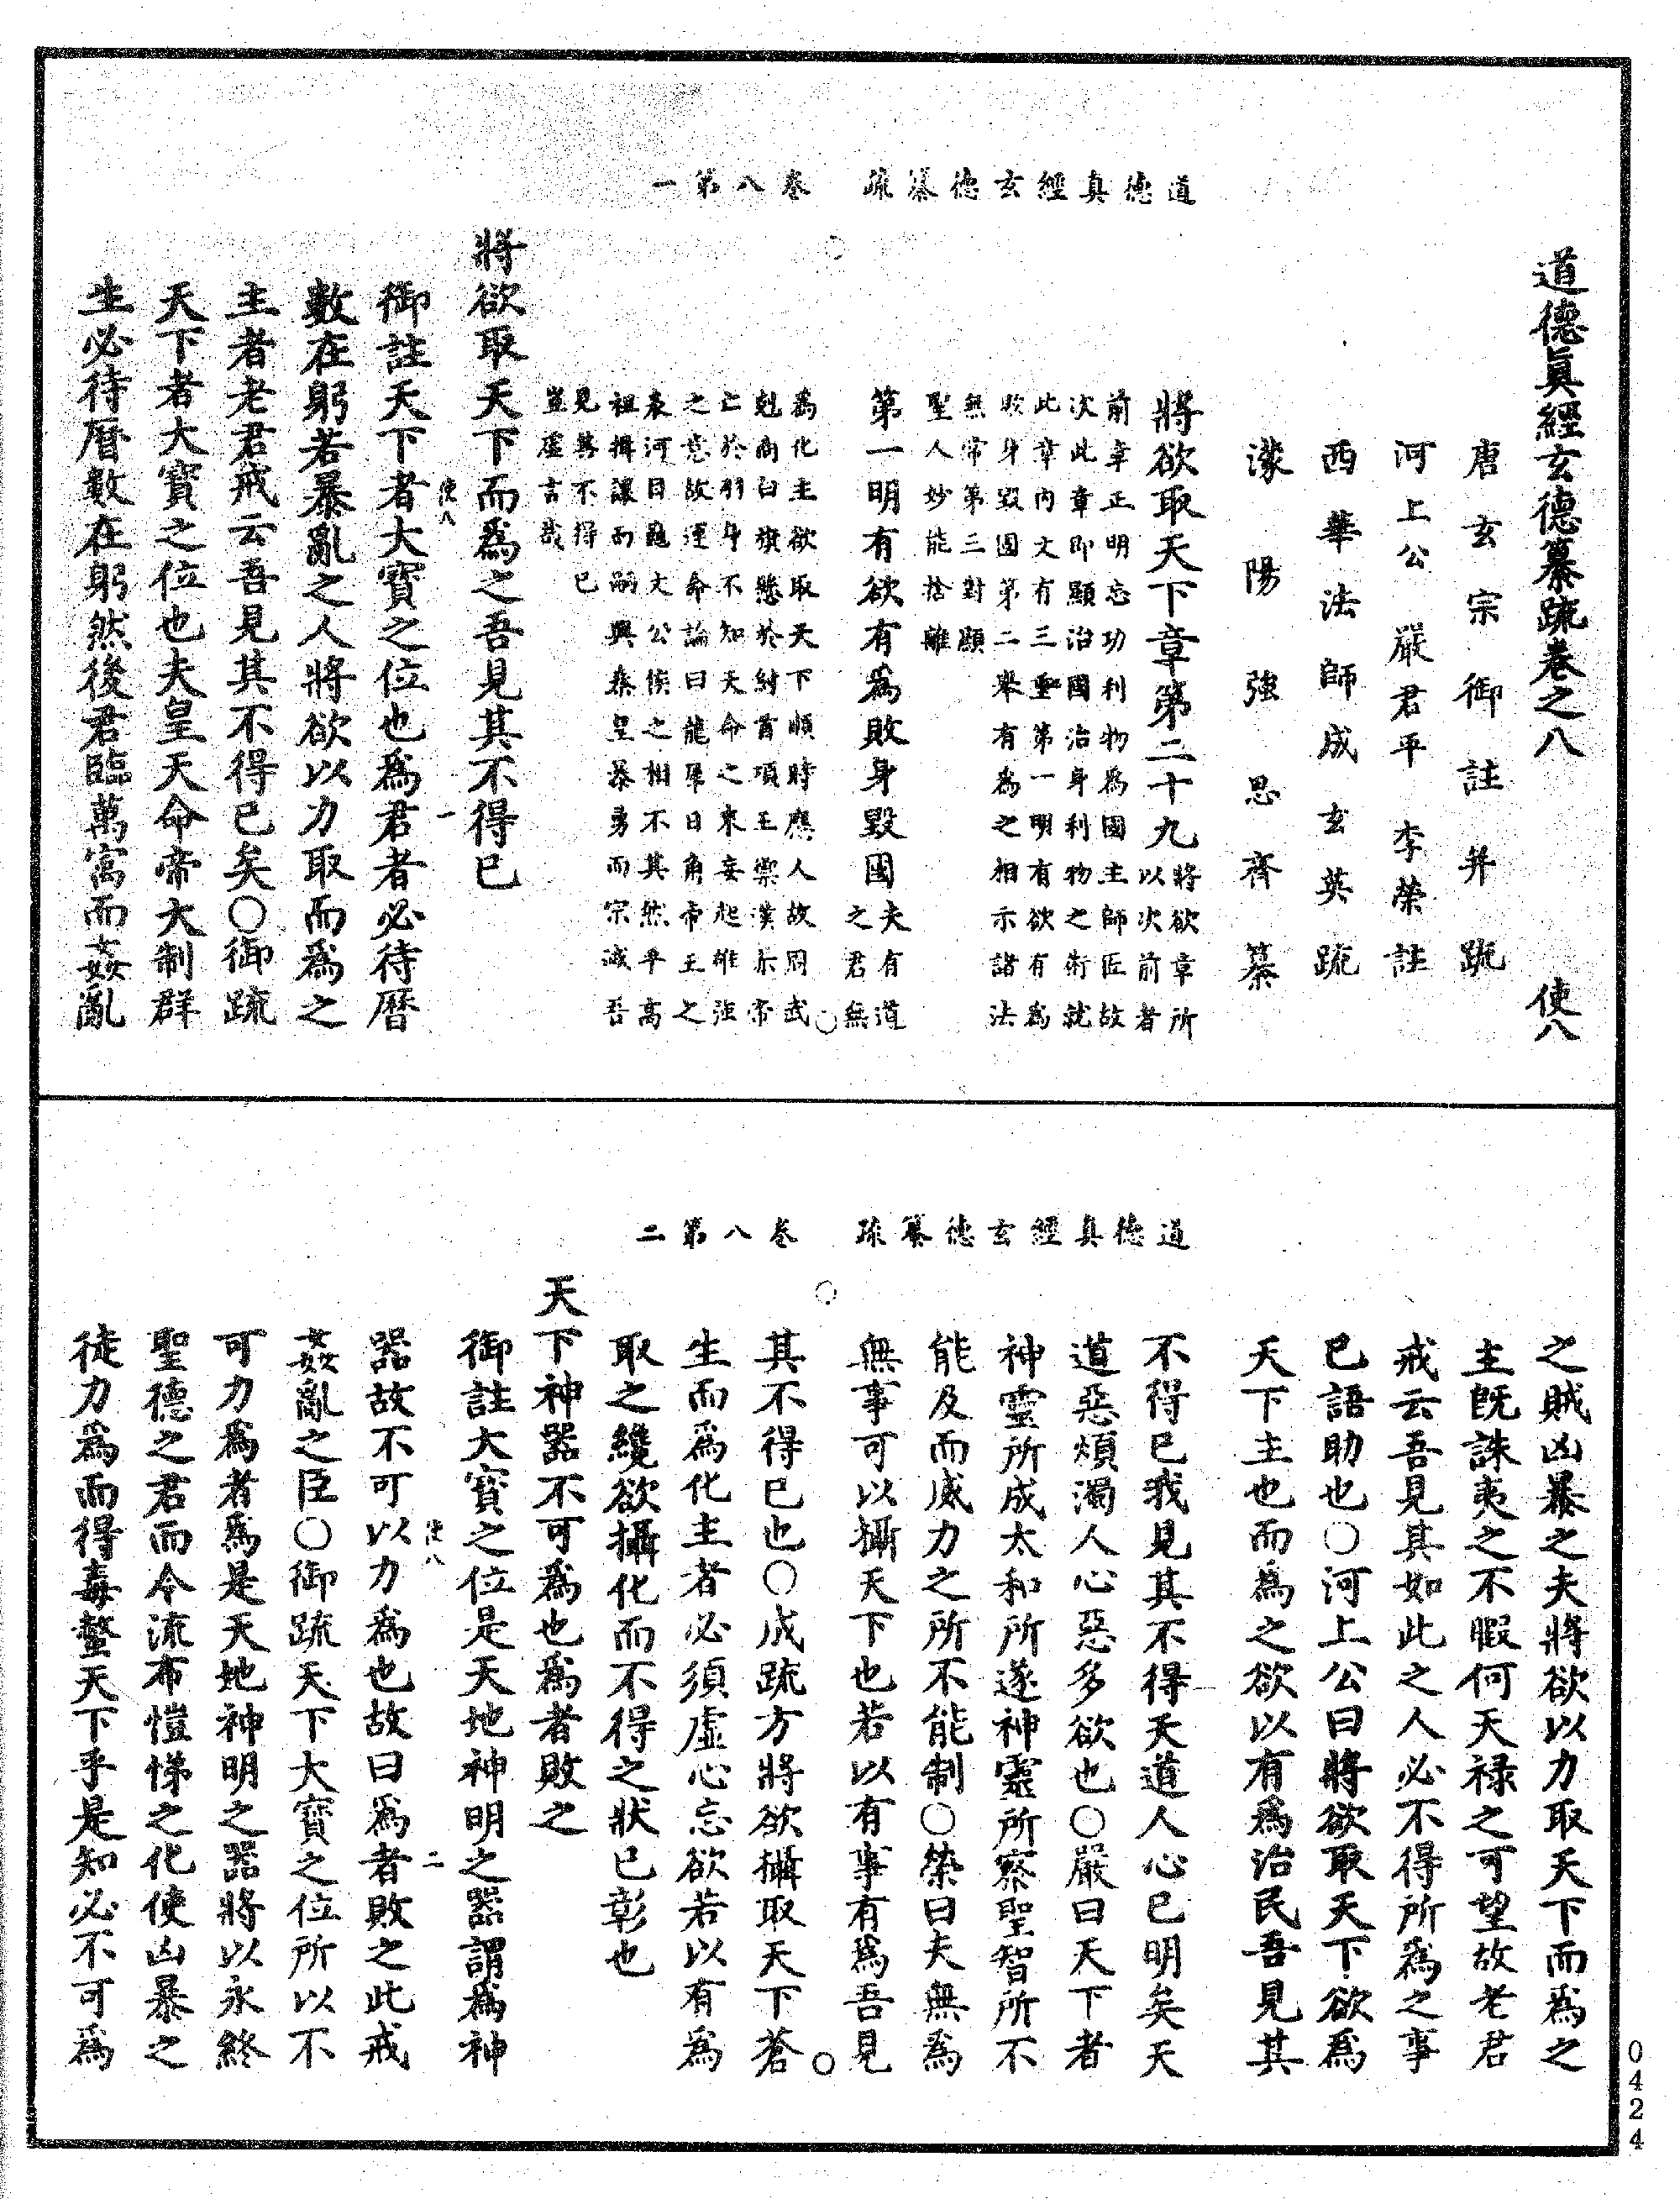 道德眞經玄德纂疏卷之八 使八
唐玄宗御註并疏
河上公 嚴君平 李榮註
西華法師成玄英疏
濛陽強思齊纂
將欲取天下章第二十九 將欲章所以次前者
前章正明忘功利物爲國主師匠故
次此章即顯治國治身利物之術就
此章內文有三重第一明有欲有爲
敗身毀國第二舉有爲之相示諸法
無常第三對顯
聖人妙能捨離
第一明有欲有爲敗身毀國 夫有道之君無
爲化主欲取天下順時應人故周武
尅商白旗懸於紂首項王禦漢示帝
亡於羽身不知天命之來妄起雄強
之意故運命論曰龍犀日角帝王之
表河目龜文公侯之相不其然乎高
祖揖讓而嗣興秦皇暴勇而宗滅吾
見其不得已
豈虛言哉
將欲取天下而爲之吾見其不得已
使八 一
御註天下者大寶之位也爲君者必待曆
數在躬若暴亂之人將欲以力取而爲之
主者老君戒云吾見其不得已矣○御疏
天下者大寶之位也夫皇天命帝大制群
生必待曆數在躬然後君臨萬寓而姦亂
道德真經玄德纂疏 卷八第一
之賊凶暴之夫將欲以力取天下而爲之
主旣誅夷之不暇何天禄之可望故老君
戒云吾見其如此之人必不得所爲之事
已語助也○河上公曰將欲取天下欲爲
天下主也而爲之欲以有爲治民吾見其
不得已我見其不得天道人心已明矣天
道惡煩濁人心惡多欲也○嚴曰天下者
神靈所成太和所遂神靈所察聖智所不
能及而威力之所不能制○榮曰夫無爲
無事可以攝天下也若以有事有爲吾見
其不得已也○成疏方將欲攝取天下蒼
生而爲化主者必須虛心忘欲若以有爲
取之纔欲攝化而不得之狀已彰也
天下神器不可爲也爲者敗之
御註大寶之位是天地神明之器謂爲神
使八 二
器故不可以力爲也故曰爲者敗之此戒
姦亂之臣○御疏天下大寶之位所以不
可力爲者爲是天地神明之器將以永終
聖德之君而令流布愷悌之化使凶暴之
徒力爲而得毒螫天下乎是知必不可爲
道德真經玄德纂疏 卷八第二
0424